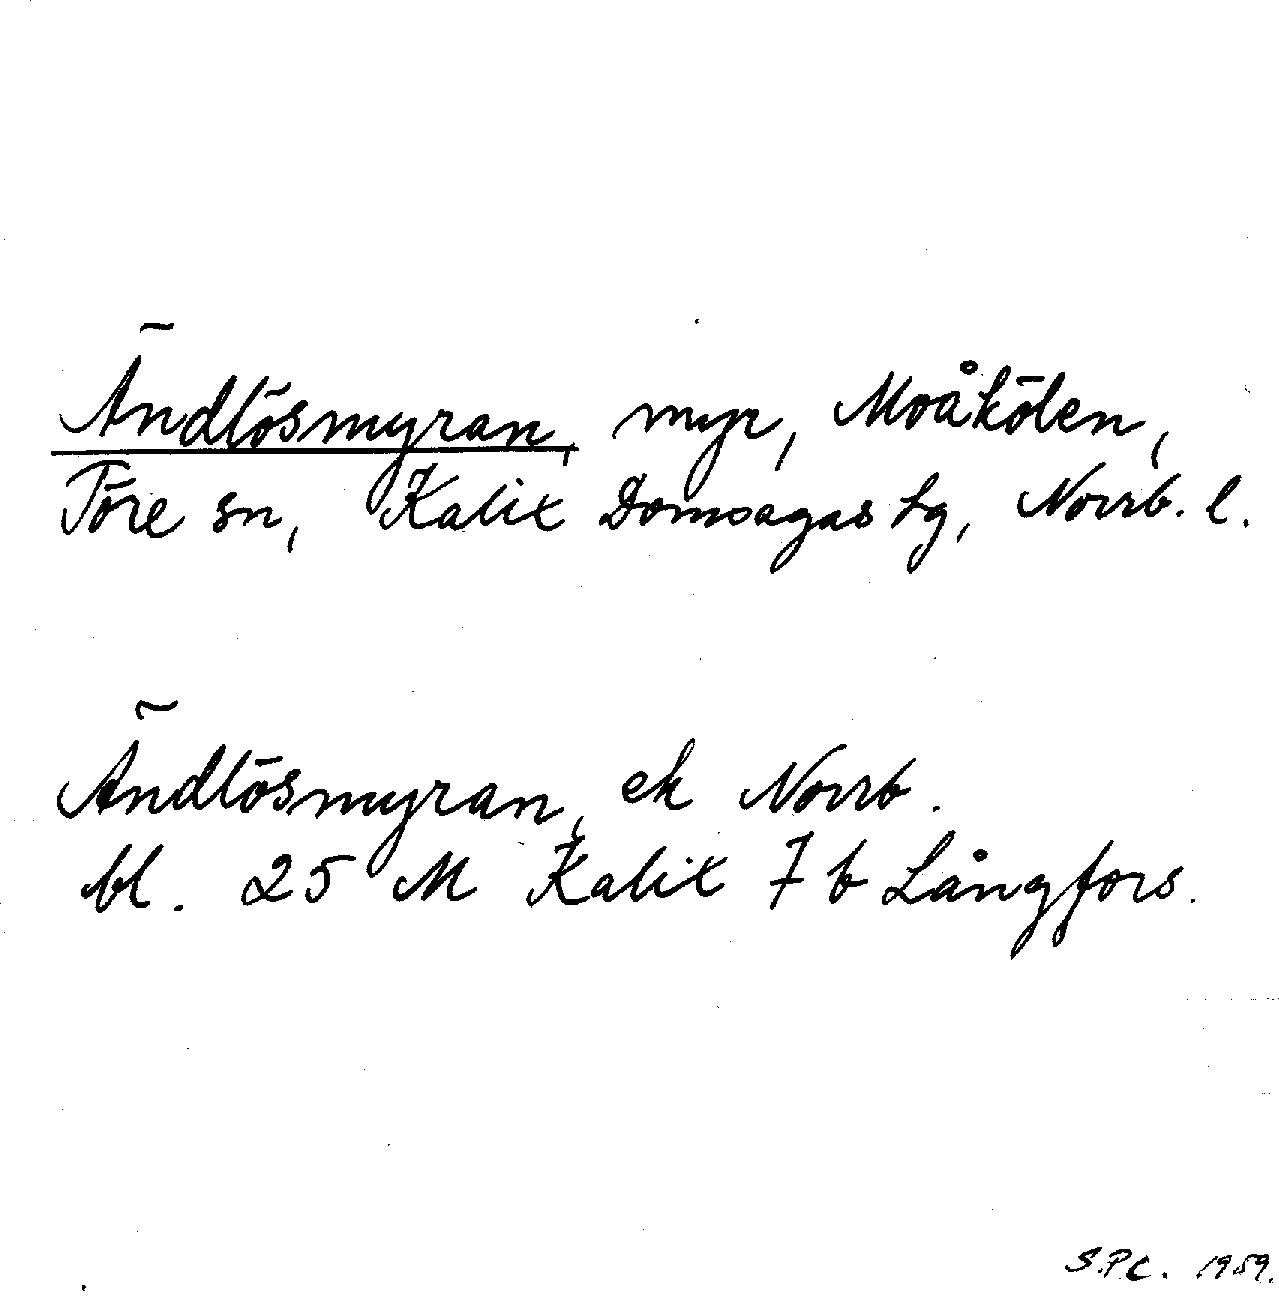 Ändlösmyran, myr, Moåkölen,
Töre sn, Kalix Domsagas tg, Norrb. l.
Ändlösmyran, ek Norrb.
bl. 25 M Kalix 7 b Långfors.
S.P.C. 1959.